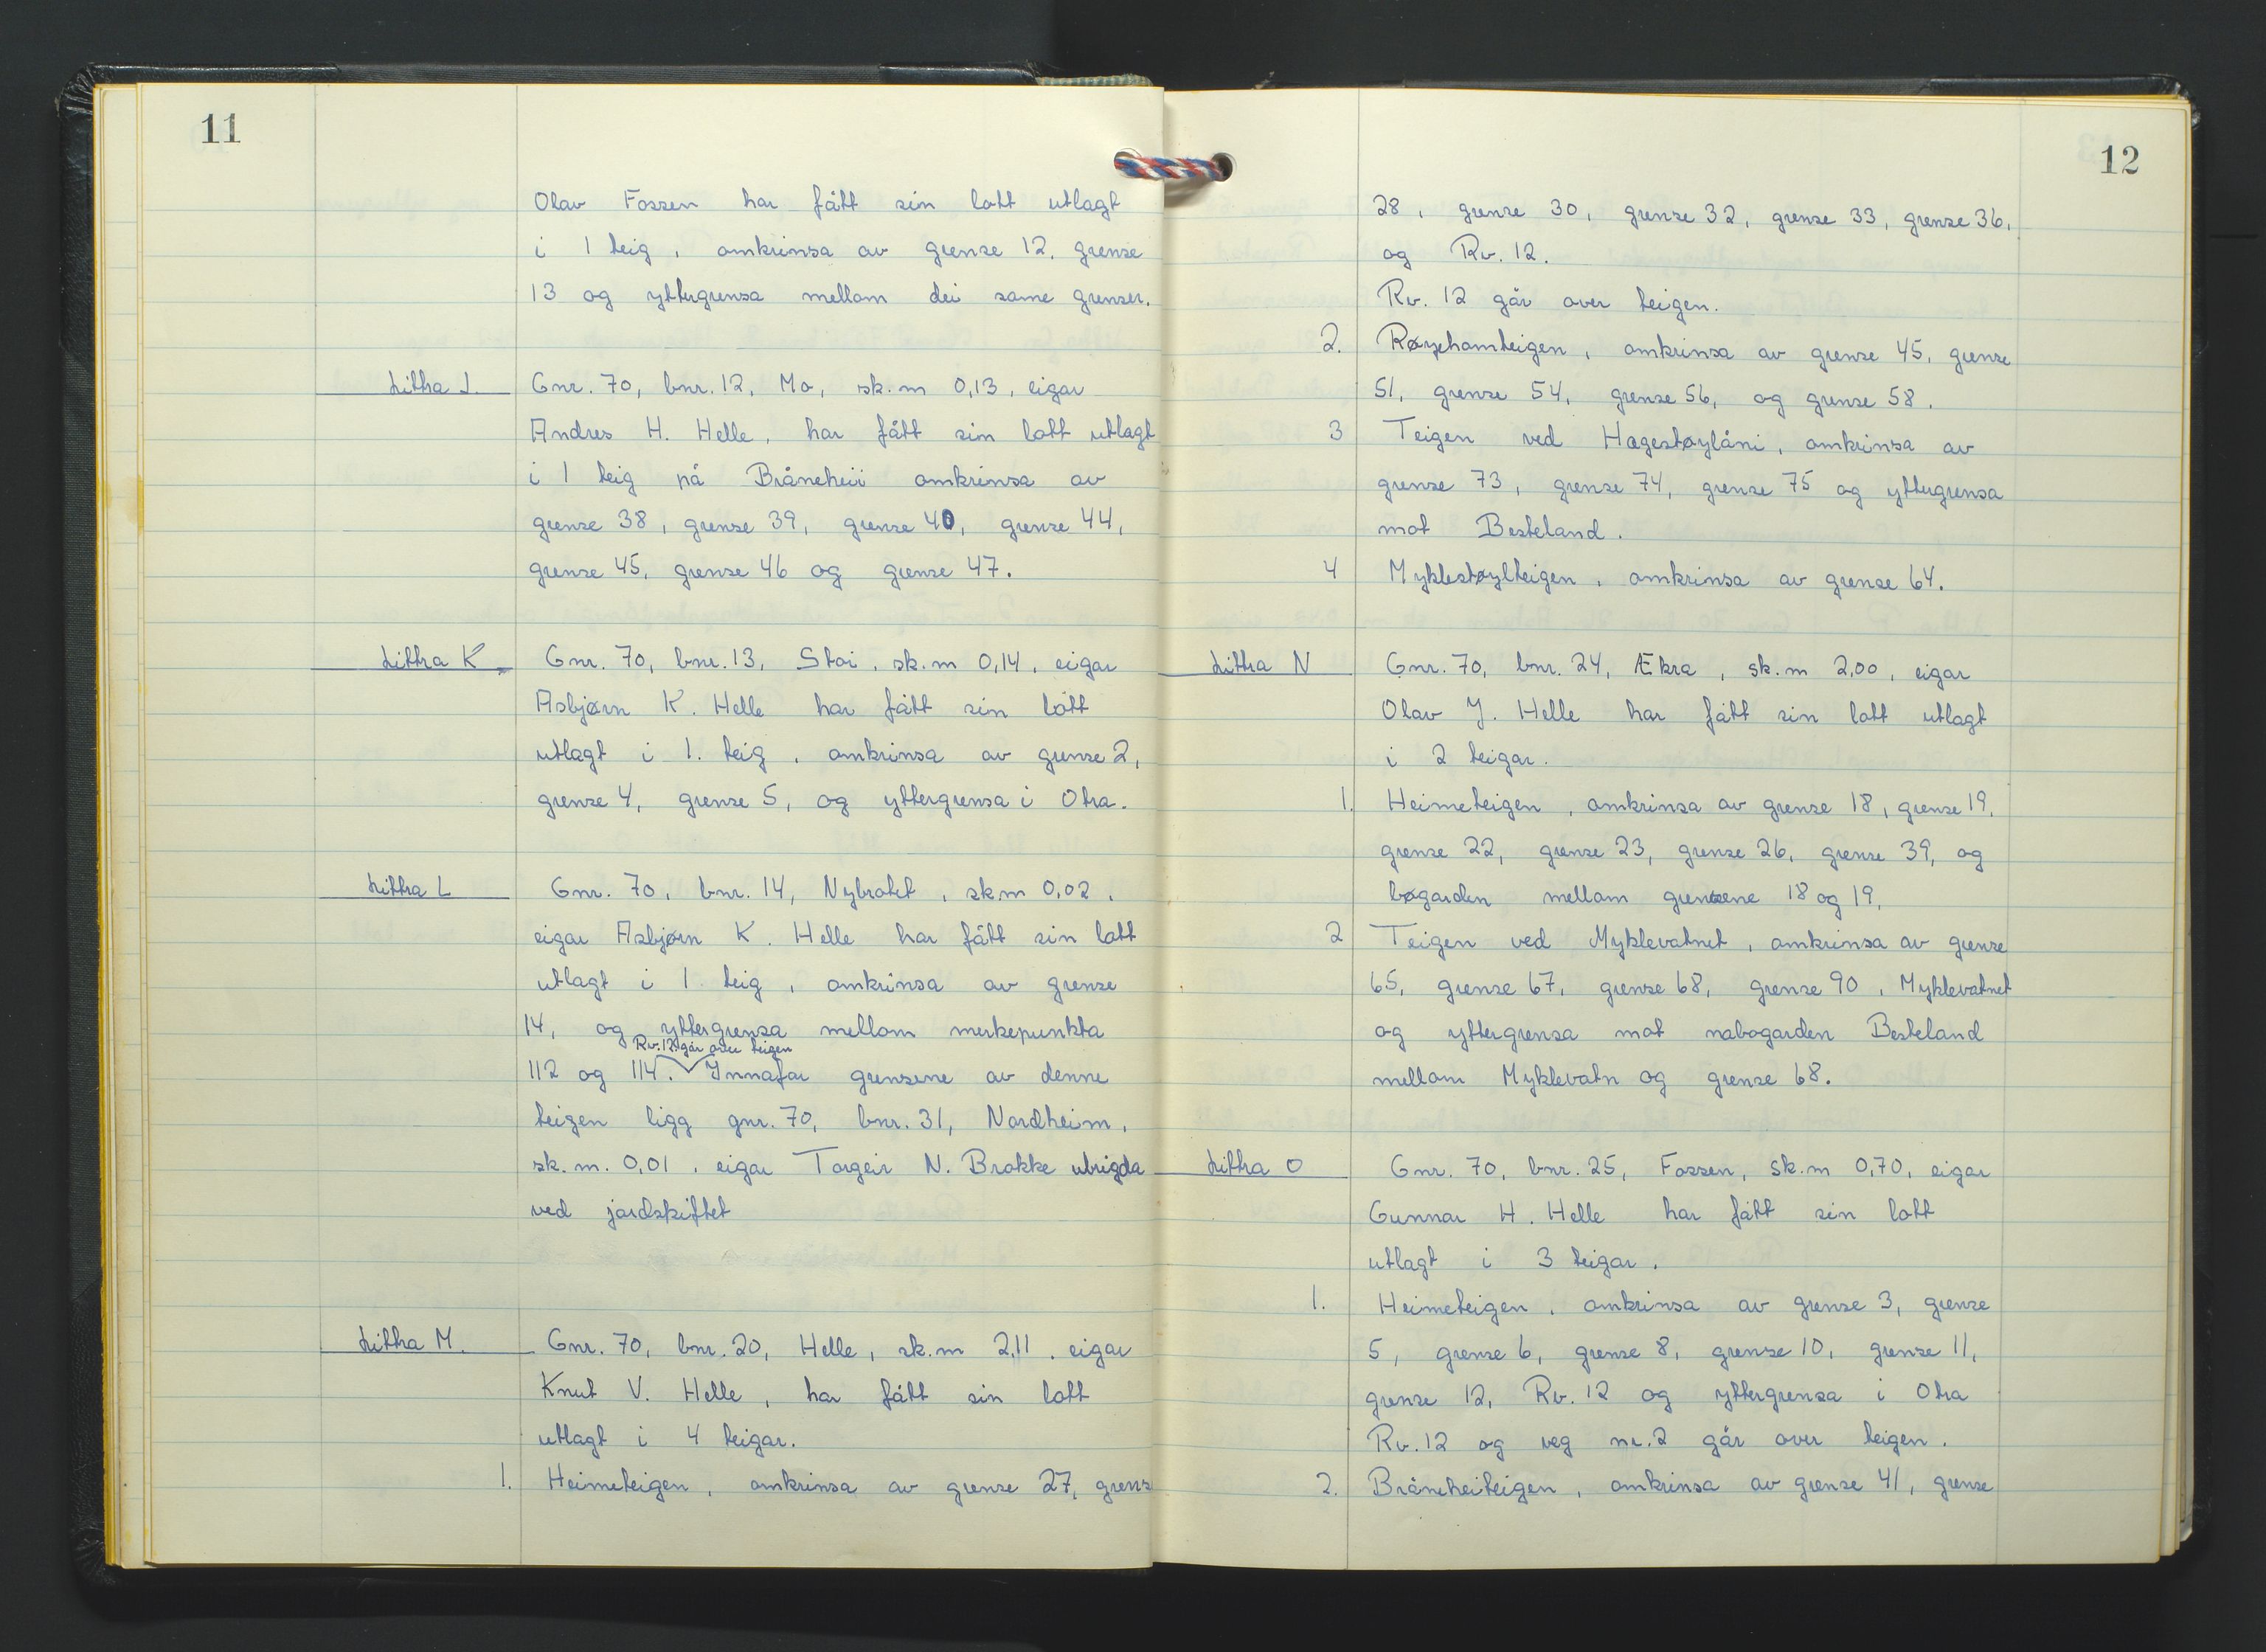 11
Olav Fossen har fått sin lott utlagt
i 1 teig, omkrinsa av grense 12, grense
13 og yttergrensa mellom dei same grenser.
Littra J. Gnr. 70, bnr. 12, Mo, sk.m 0,13, eigar
Andres H. Helle, har fått sin lott utlagt
i 1 teig på Bråneheii omkrinsa av
grense 38, grense 39, grense 40, grense 44,
grense 45, grense 46 og grense 47.
Littra K Gnr. 70, bnr. 13, Stoi, sk.m 0,14, eigar
Asbjørn K. Helle har fått sin lott
utlagt i 1. teig, omkrinsa av grense 2,
grense 4, grense 5, og yttergrensa i Otra.
Littra L Gnr. 70, bnr. 14, Nybrotet, sk.m 0,02,
eigar Asbjørn K. Helle har fått sin lott
utlagt i 1 teig, omkrinsa av grense
14, og yttergrensa mellom merkepunkta
Rv. 12 går over teigen
112 og 114. Innafor grensene av denne
teigen ligg gnr. 70, bnr. 31, Nordheim,
sk.m. 0,01, eigar Torgeir N. Brokke ubrigda
ved jordskiftet
Littra M. Gnr. 70, bnr. 20, Helle, sk.m 2,11, eigar
Knut V. Helle, har fått sin lott
utlagt i 4 teigar.
1. Heimeteigen, omkrinsa av grense 27, grense
12
28, grense 30, grense 32, grense 33, grense 36,
og Rv. 12.
Rv. 12 går over teigen.
2. Røyehomteigen, omkrinsa av grense 45, grense
51, grense 54, grense 56, og grense 58.
3 Teigen ved Hagestøylåni, omkrinsa av
grense 73, grense 74, grense 75 og yttergrensa
mot Besteland.
4 Myklestøylteigen, omkrinsa av grense 64.
Littra N Gnr. 70, bnr. 24, Ækra, sk.m 2,00, eigar
Olav J. Helle har fått sin lott utlagt
i 2 teigar.
1. Heimeteigen, omkrinsa av grense 18, grense 19,
grense 22, grense 23, grense 26, grense 39, og
bøgarden mellom grensene 18 og 19.
2 Teigen ved Myklevatnet, omkrinsa av grense
65, grense 67, grense 68, grense 90, Myklevatnet
og yttergrensa mot nabogarden Besteland
mellom Myklevatn og grense 68.
Littra O Gnr. 70, bnr. 25, Fossen, sk.m 0,70, eigar
Gunnar H. Helle har fått sin lott
utlagt i 3 teigar.
1. Heimeteigen, omkrinsa av grense 3, grense
5, grense 6, grense 8, grense 10, grense 11,
grense 12, Rv. 12 og yttergrensa i Otra
Rv. 12 og veg nr. 2 går over teigen.
2. Bråneheiteigen, omkrinsa av grense 41, grense